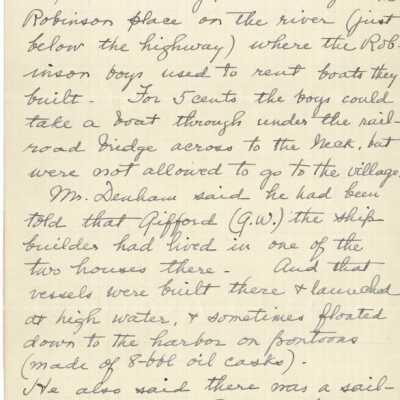 Robinson place on the river (just
below the highway) where the Rob-
inson boys used to rent boats they
built - For 5 cents the boys could
take a boat through under the rail-
road bridge across to the Neck, but
were not allowed to go to the village.
Mr. Denham said he had been
told that Gifford (G.W.) the ship
builder had lived in one of the
two houses there - And that
vessels were built there & launched
at high water, & sometimes floated
down to the harbor on pontoons
(made of 8-bbl oil casks).
He also said there was a sail-